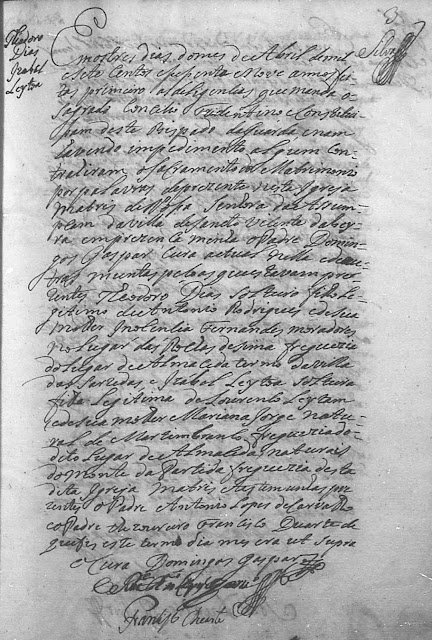 3
Silva
Theodoro
Dias
Izabel
Leytoa
mos tres dias do mes de Abril de mil
e Sete Centos e Sepenta e Nove annos fei
tas primeiro as deligencias que manda o
Sagrado Concilio Tridentino e Constetui
sam deste Bispado da Guarda e nam
havendo impedimento algum Con
trahiram o Sacramento do Matrimonio
por palavras de prezente nesta Igreja
Matris de Nossa Senhora da Assum
psam da villa de Sam Vicente da bey
ra em prezente minha o Padre Domin
gos Gaspar Cura actual della e de ou
tras muntas pesoas que estavam prez
entes Theodoro Dias Solteiro filho Le
gitimo de Antonio Rodrigues e de sua
molher Inocencia Fernandes moradores
no lugar das Rochas de sima freguezia
do lugar de Almaceda termo da villa
das Sarzedas e Izabel Leytoa Solteira
filha Legitima de Lourenso Leytam
e de sua molher Mariana Jorge natu
ral de Martimbranco freguezia do
dito Lugar de Almaceda naturais
do monte da Partida freguezia desta
dita Igreja Matris e testemunhas prez
entes o Padre Antonio Lopes de Carvalho
e o Padre Thezoureiro Francisco Duarte de
que fis este termo dia mes era ut supra
O Cura Domingos Gaspar
Franco Duarte